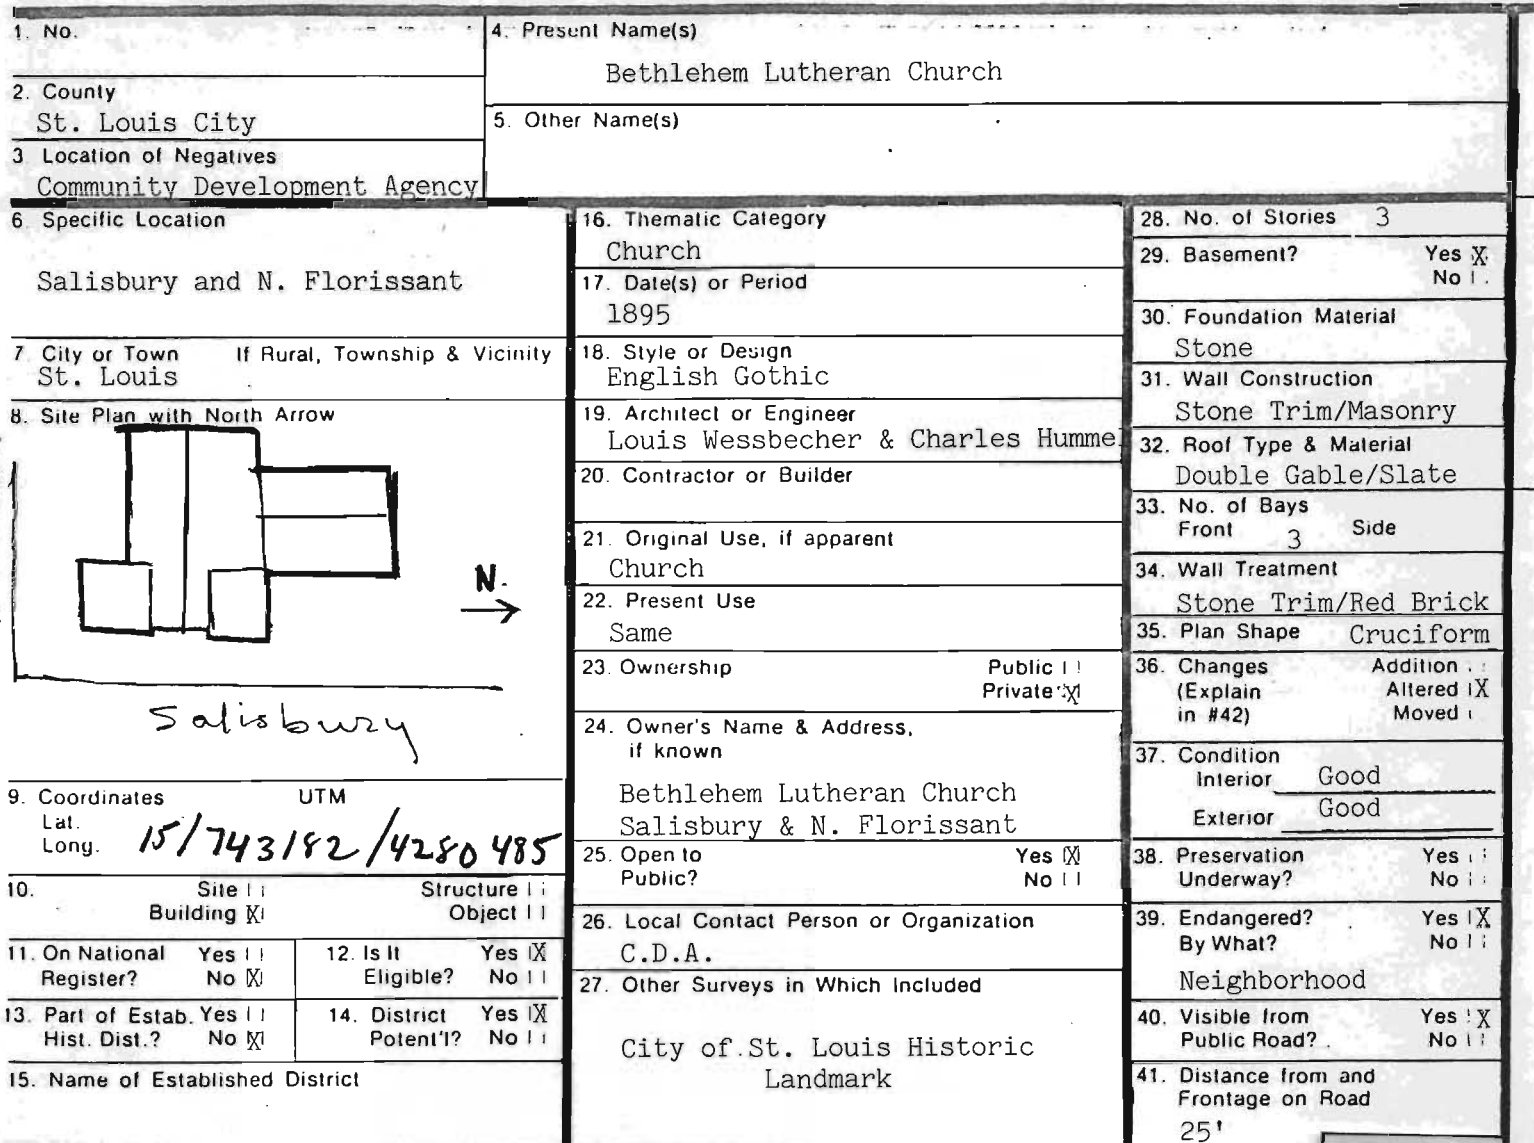 1. No.
4. Present Name(s)
Bethlehem Lutheran Church
2. County
St. Louis City
5. Other Name(s)
3 Location of Negatives
Community Development Agency
6. Specific Location
Salisbury and N. Florissant
7. City or Town If Rural, Township & Vicinity
St. Louis
8. Site Plan with North Arrow
N.
Salisbury
9. Coordinates UTM
Lat.
Long.
15/743182/4280485
10. Site Structure
Building X Object
11. On National Yes
Register? No X
12. Is It Yes X
Eligible? No
13. Part of Estab. Yes
Hist. Dist.? No X
14. District Yes X
Potent'l? No
15. Name of Established District
16. Thematic Category
Church
17. Date(s) or Period
1895
18. Style or Design
English Gothic
19. Architect or Engineer
Louis Wessbecher & Charles Humme
20. Contractor or Builder
21. Original Use, if apparent
Church
22. Present Use
Same
23. Ownership Public
Private X
24. Owner's Name & Address,
if known
Bethlehem Lutheran Church
Salisbury & N. Florissant
25. Open to Yes X
Public? No
26. Local Contact Person or Organization
C.D.A.
27. Other Surveys in Which Included
City of St. Louis Historic
Landmark
28. No. of Stories 3
29. Basement? Yes X
No
30. Foundation Material
Stone
31. Wall Construction
Stone Trim/Masonry
32. Roof Type & Material
Double Gable/Slate
33. No. of Bays
Front 3 Side
34. Wall Treatment
Stone Trim/Red Brick
35. Plan Shape Cruciform
36. Changes Addition
(Explain Altered X
in #42) Moved
37. Condition
Interior Good
Exterior Good
38. Preservation Yes
Underway? No
39. Endangered? Yes X
By What? No
Neighborhood
40. Visible from Yes X
Public Road? No
41. Distance from and
Frontage on Road
25'